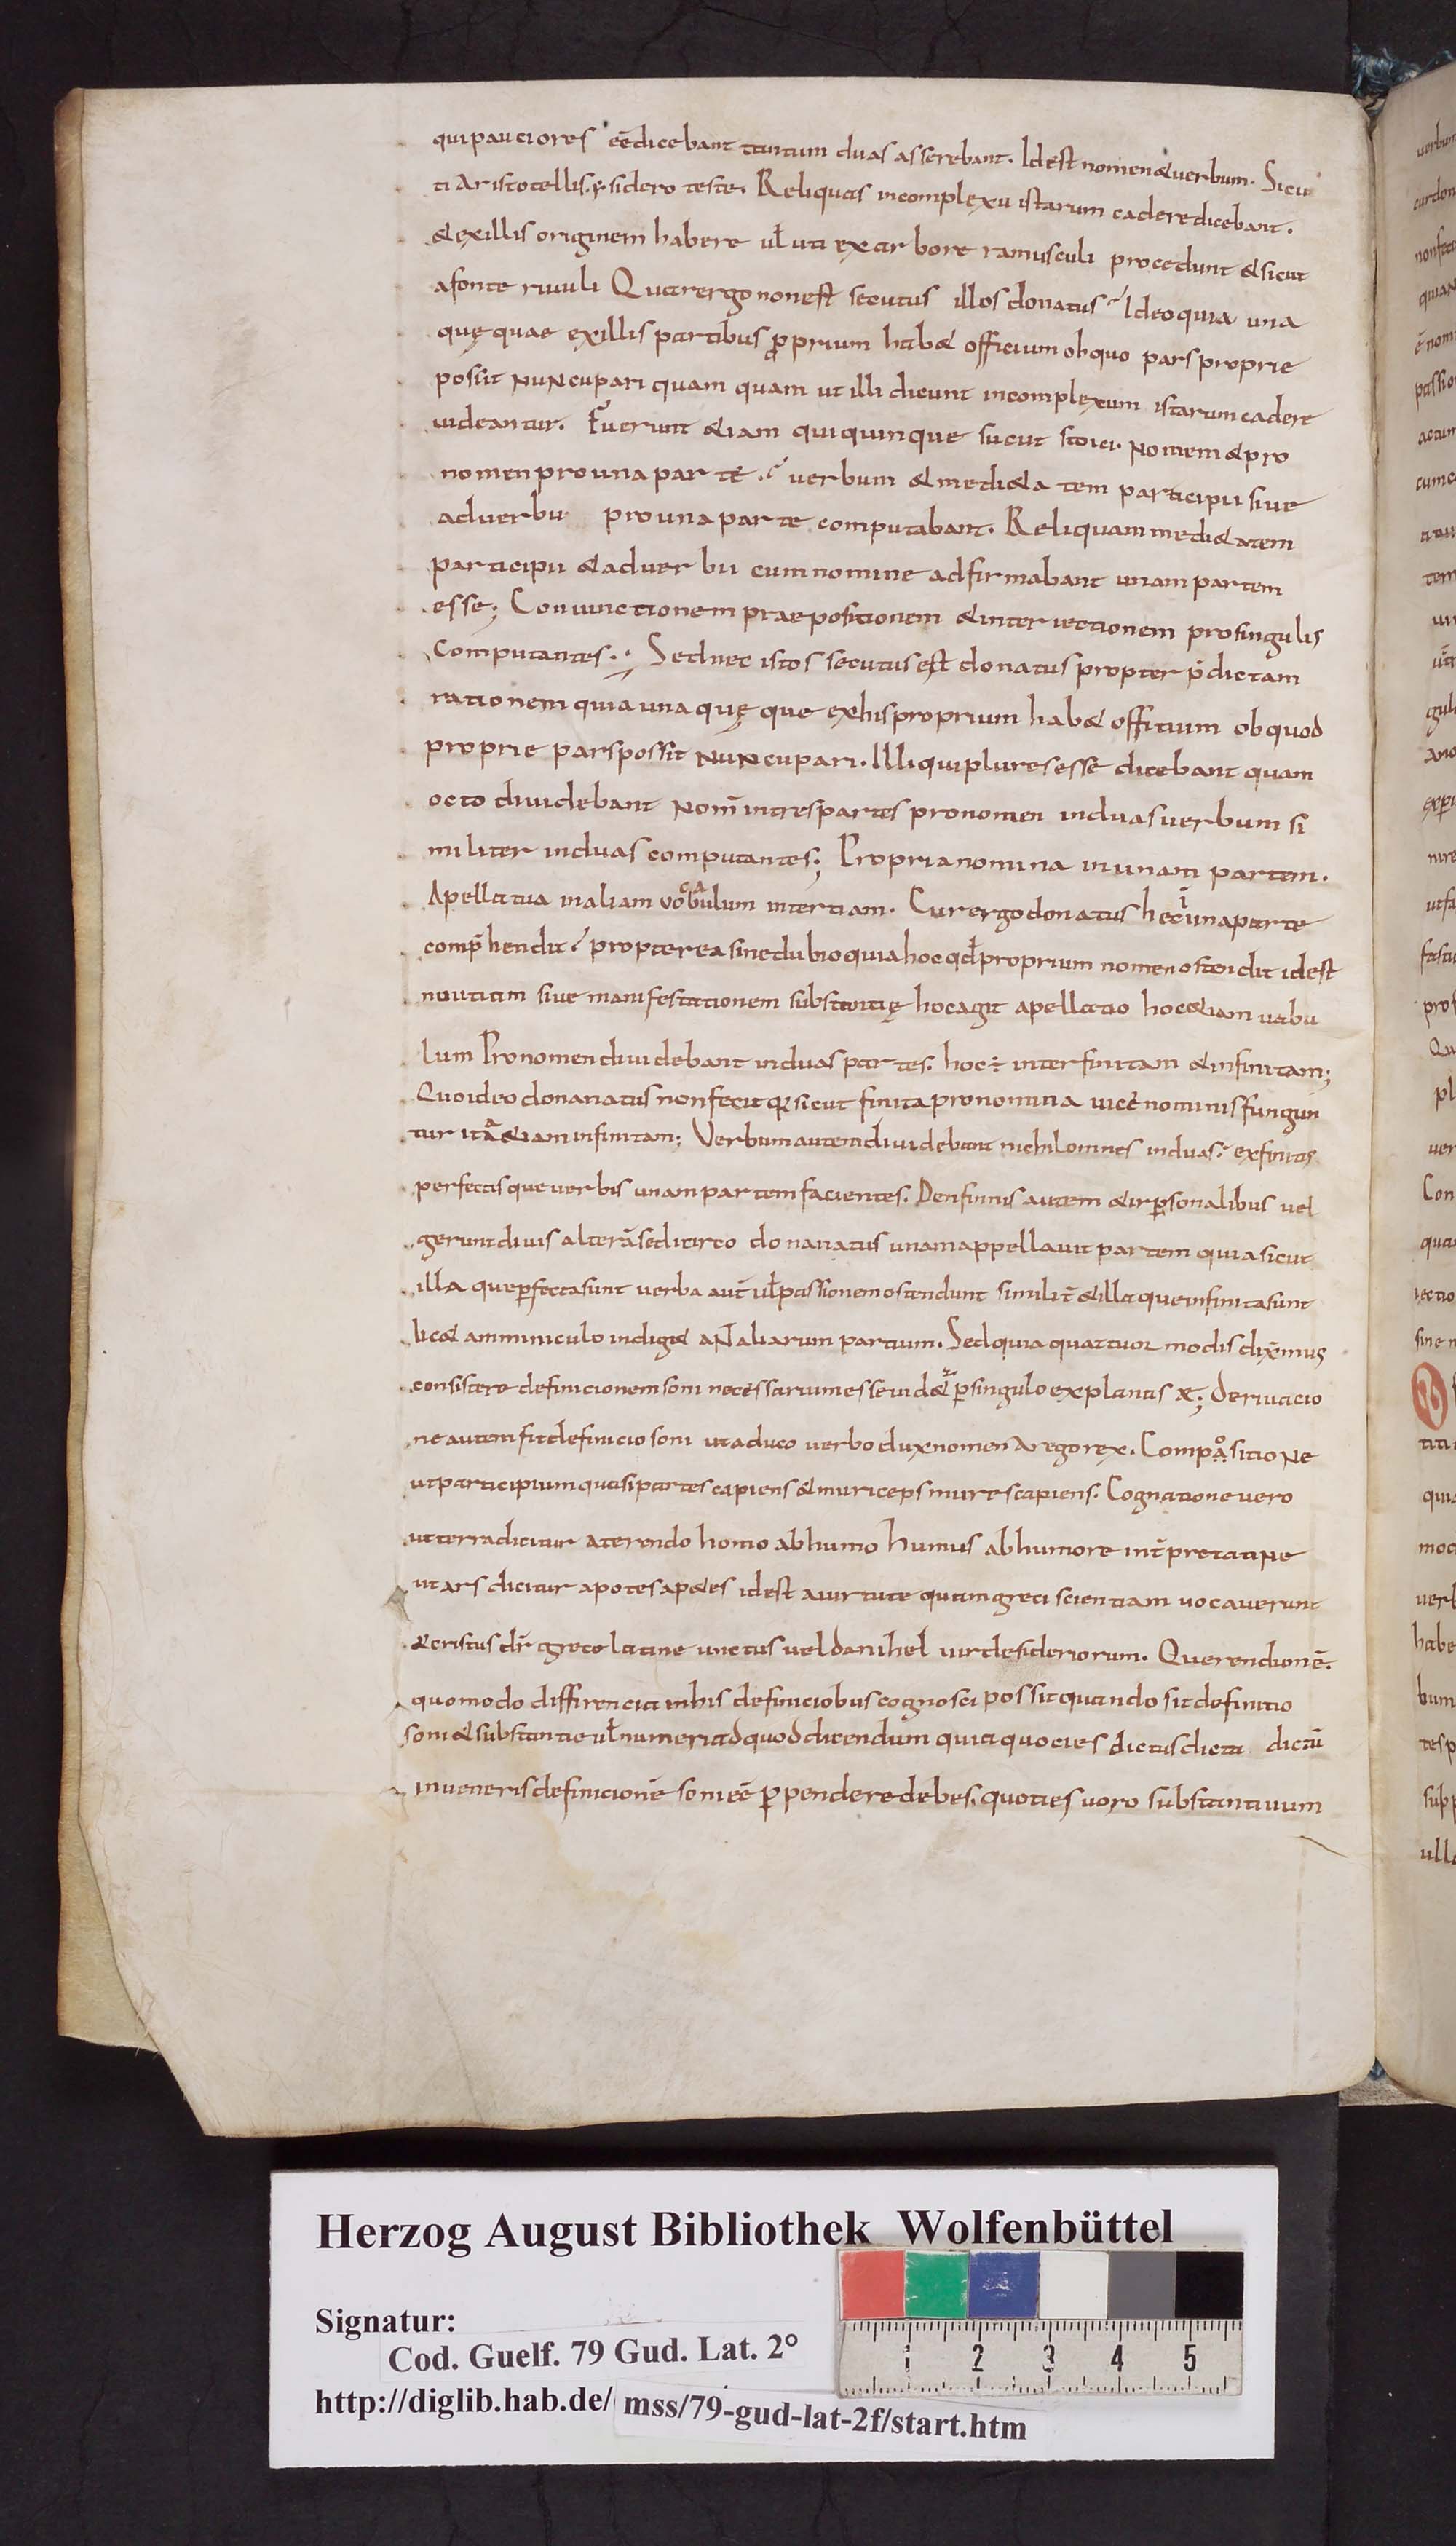 qui pauciores eē dicebant tantum duas asserebant. Id est nomen & uerbum. Sicu
ti Aristotellis. ysidero teste. Reliquas incomplexu istarum cadere dicebant.
& exillis originem habere ul̄ uti ex arbore ramusculi procedunt & sicut
a fonte riuuli Quare ergo non est secutus illos donatus Ideo quia una
quę quae exillis partibus ꝓprium hab& officium ob quo pars proprie
possit NuNcupari quam quam ut illi dicunt incomplexum istarum cadere
uideantur. Fuerunt &iam qui quinque sicut stoici. Nomem & pro
nomen pro una parte. uerbum & medi&atem participii siue
aduerbii pro una parte computabant. Reliquam medi&atem
participii & aduerbii cum nomine adfirmabant unam partem
esse; Coniunctionem praepositionem & interiectionem pro singulis
Computantes. Sed nec istos secutus est donatus propter p̄dictam
rationem quia una quę que ex his proprium hab& offitium ob quod
proprie pars possit NuNcupari. Illi qui plures esse dicebant quam
octo diuidebant Nom̄ in tres partes pronomen in duas uerbum si
militer in duas computantes; Propria nomina in unam partem.
Apellatiua in aliam uocabulum in tertiam. Cur ergo donatus hec ī una parte
comp̄hendit propterea sine dubio quia hoc qd̄ proprium nomen ostendit id est
noutiam siue manifestationem substantię hoc agit apellatio hoc &iam uabu
lum Pronomen diuidebant in duas partes. hoc ÷ inter finitam & infinitam;
Quo ideo donanatus non fecit q̄ sicut finita pronomina uicē nominis fungun
tur ita &iam infinitam; Verbum autem diuidebant nichilomines in duas. ex finitis
perfectis que uerbis unam partem facientes. Den finnis autem & inꝑsonalibus uel
gerundiuis alterā sed icirco donanatus unam appellauit partem quia sicut
illa que ꝑfecta sunt uerba aut̄ ul̄ passionem ostendunt similit̄ & illa que infinita sunt
lic& amminiculo indig& aN aliarum partium. Sed quia quattuor modis diximus
consistere definicionem soni necessarium esse uid&ur ꝑ singulo explanas &; Deriuacio
ne autem fit definicio soni ut a duco uerbo dux nomen A rego rex. CompositioNe
ut participium quasi partes capiens & muriceps mures capiens. Cognatione uero
ut terra dicitur a terendo homo ab humo humus ab humore int̄pretatiNe
ut ars dicitur apo tes ap&es id est a uirtute quam greci scientiam uocauerunt
& cristus dr̄ grece latine unctus uel danihel uir desideriorum. Querendion ē.
quomodo diffirencia in his definiciobus cognosci possit quando sit definitio
soni & substantie ul̄ numeri ad quod dicendum quia quocies dictus dicta dictū
inueneris definicionē soni eē ꝑpendere debes, quoties uoro substantiuum
Herzog August Bibliothek Wolfenbüttel
Signatur:
Cod. Guelf. 79 Gud. Lat. 2°
http://diglib.hab.de/ mss/79-gud-lat-2f/start.htm
1 2 3 4 5